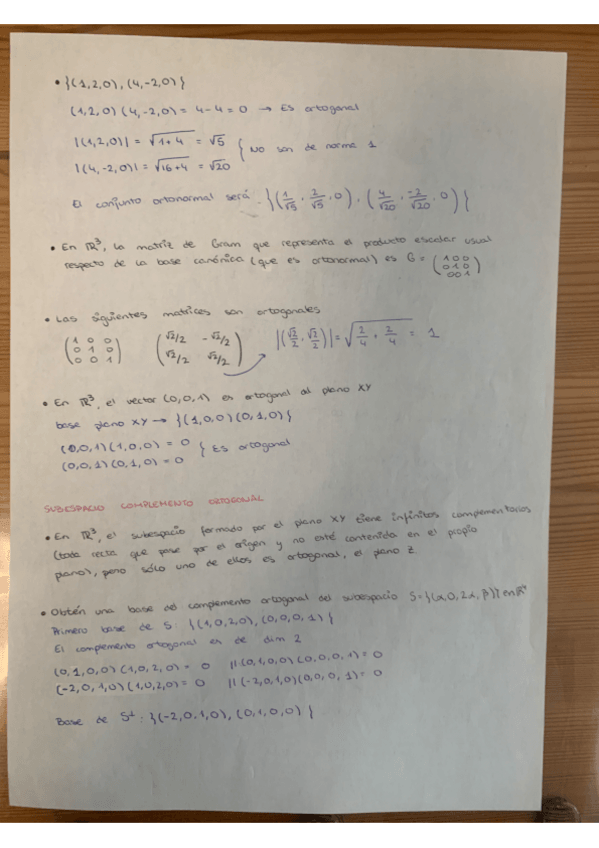 • {(1,2,0), (4,-2,0)}
(1,2,0) (4,-2,0) = 4-4 = 0 → Es ortogonal
|(1,2,0)| = √1+4 = √5
|(4,-2,0)| = √16+4 = √20 } No son de norma 1
El conjunto ortonormal será: {(1/√5, 2/√5, 0), (4/√20, -2/√20, 0)}
• En ℝ³, la matriz de Gram que representa el producto escalar usual
respecto de la base canónica (que es ortonormal) es G = (1 0 0
0 1 0
0 0 1)
• Las siguientes matrices son ortogonales
(1 0 0
0 1 0
0 0 1) (√2/2 -√2/2
√2/2 √2/2) |(√2/2, √2/2)| = √2/4 + 2/4 = 1
• En ℝ³, el vector (0,0,1) es ortogonal al plano XY
base plano XY → {(1,0,0)(0,1,0)}
(0,0,1)(1,0,0) = 0
(0,0,1)(0,1,0) = 0 } Es ortogonal
SUBESPACIO COMPLEMENTO ORTOGONAL
• En ℝ³, el subespacio formado por el plano XY tiene infinitos complementarios
(toda recta que pase por el origen y no esté contenida en el propio
plano), pero sólo uno de ellos es ortogonal, el plano Z.
• Obtén una base del complemento ortogonal del subespacio S={(α,0,2α,β)} en ℝ⁴
Primero base de S {(1,0,2,0), (0,0,0,1)}
El complemento ortogonal es de dim 2
(0,1,0,0)(1,0,2,0) = 0 || (0,1,0,0)(0,0,0,1) = 0
(-2,0,1,0)(1,0,2,0) = 0 || (-2,0,1,0)(0,0,0,1) = 0
Base de S⊥: {(-2,0,1,0), (0,1,0,0)}